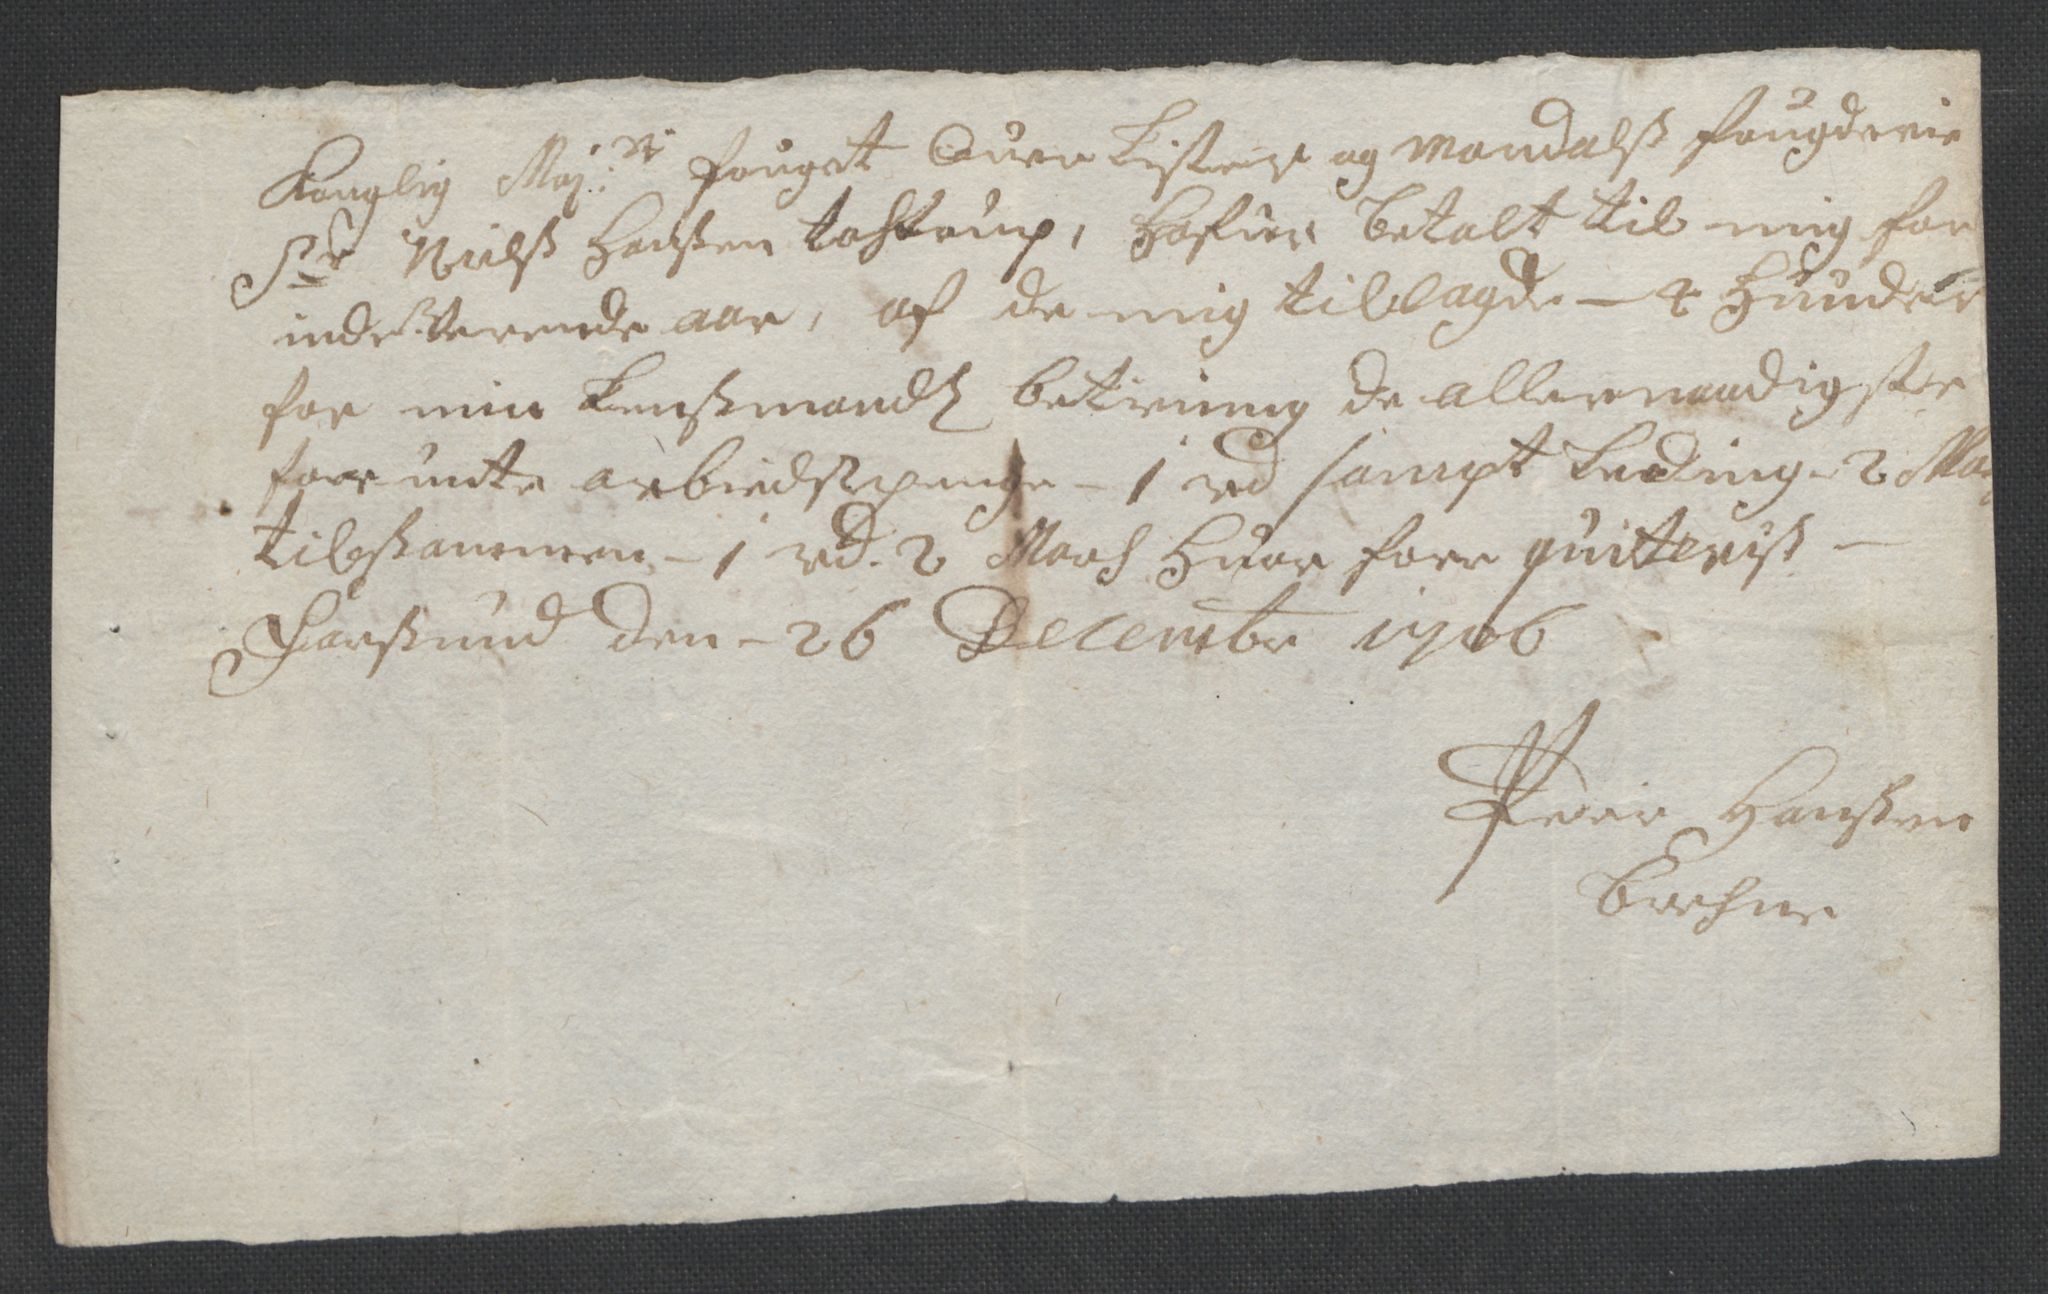 Konglig Maj:tt fougett Ouer Lister og Mandalß fougderie
Sr Nielß Hanßen tastrup, Hafuer betalt til mig for
indeßVerende aar, af de mig tillagde - 4 Hunder
for min Lenßmandß betiening de allernaadigste
forunte arbiedßpenge - 1 rd sampt Leding - 2 Mar
tilßammen - 1 rd. 2 March Huor forre quiteriß -
Farßund den - 26 Decembr 1706
Peder Hanßen